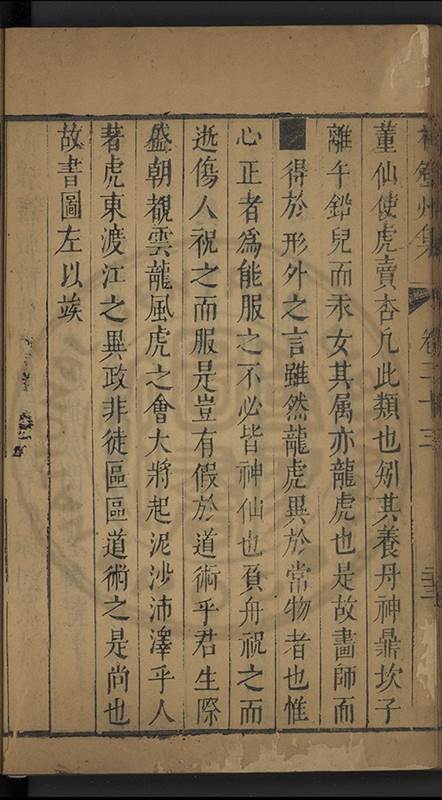 集 卷二十三
董仙使虎賣杏凡此類也矧其養丹神鼎坎子
離午鉛兒而汞女其属亦龍虎也是故畫師而
得於形外之言雖然龍虎異於常物者也惟
心正者爲能服之不必皆神仙也負舟祝之而
逝傷人祝之而服是豈有假於道術乎君生際
盛朝覩雲龍風虎之會大將起泥沙沛澤乎人
著虎東渡江之異政非徒區區道術之是尚也
故書圖左以竢